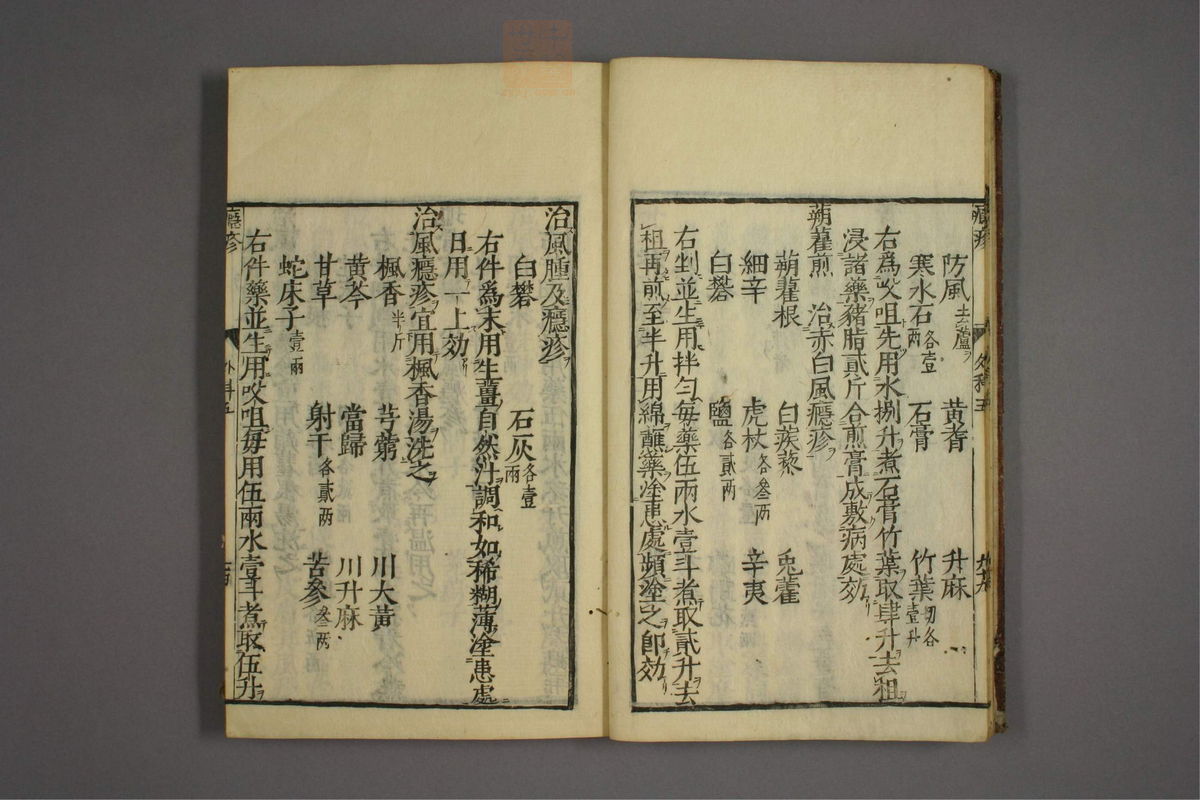 癮疹 外科五 九九
防風去蘆 黄耆 升麻
寒水石各壹兩 石膏 竹葉切各壹升
右爲㕮咀先用水捌升煮石膏竹葉取肆升去柤
浸諸藥豬脂貳斤合煎膏成敷病處効
蒴藋煎 治赤白風癮疹
蒴藋根 白蒺藜 兎藿
細辛 虎杖各叁兩 辛夷
白礬 鹽各貳兩
右剉並生用拌勻每藥伍兩水壹斗煮取貳升去
柤再煎至半升用綿蘸藥塗患處頻塗之即効
治風腫及癮疹
白礬 石灰各壹兩
右件爲末用生薑自然汁調和如稀糊薄塗患處
日用一上効
治風癮疹宜用楓香湯洗之
楓香半斤 芎藭 川大黃
黃芩 當歸 川升麻
甘草 射干各貳兩 苦參叁兩
蛇床子壹兩
右件藥並生用㕮咀每用伍兩水壹斗煮取伍升
癮疹 外科五